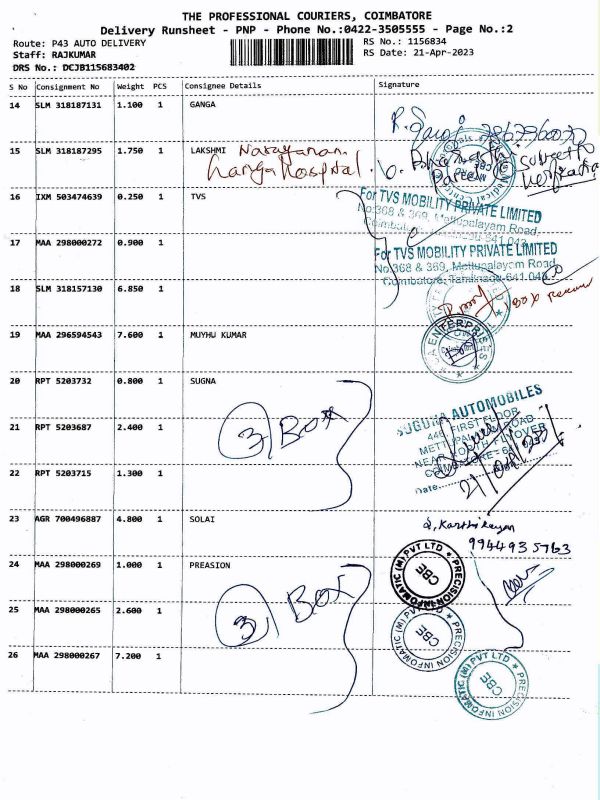 THE PROFESSIONAL COURIERS, COIMBATORE
Delivery Runsheet - PNP - Phone No.:0422-3505555 - Page No.:2
Route: P43 AUTO DELIVERY
Staff: RAJKUMAR
DRS No.: DCJB115683402
RS No.: 1156834
RS Date: 21-Apr-2023
S No Consignment No Weight PCS Consignee Details Signature
14 SLM 318187131 1.100 1 GANGA
15 SLM 318187295 1.750 1 LAKSHMI Narayanan
Ganga Hospital.
subject to
verification
16 IXM 503474639 0.250 1 TVS
For TVS MOBILITY PRIVATE LIMITED
No:368 & 369, Mettupalayam Road,
Coimbatore, Tamilnadu-641 043.
17 MAA 298000272 0.900 1
For TVS MOBILITY PRIVATE LIMITED
No:368 & 369, Mettupalayam Road,
Coimbatore, Tamilnadu-641 043.
18 SLM 318157130 6.850 1
19 MAA 296594543 7.600 1 MUYHU KUMAR
ENTERPRISES
20 RPT 5203732 0.800 1 SUGNA
21 RPT 5203687 2.400 1
3) BOX
SUGUNA AUTOMOBILES
446, FIRST FLOOR
METTUPALAYAM ROAD
NEAR NORTH FLYOVER
COIMBATORE - 641 043
Date
22 RPT 5203715 1.300 1
23 AGR 700496887 4.800 1 SOLAI
S. Karthikeyan
9944935763
24 MAA 298000269 1.000 1 PREASION
PRECISION INFOMATIC (M) PVT LTD
CBE
25 MAA 298000265 2.600 1
3) BOX
PRECISION INFOMATIC (M) PVT LTD
CBE
26 MAA 298000267 7.200 1
PRECISION INFOMATIC (M) PVT LTD
CBE